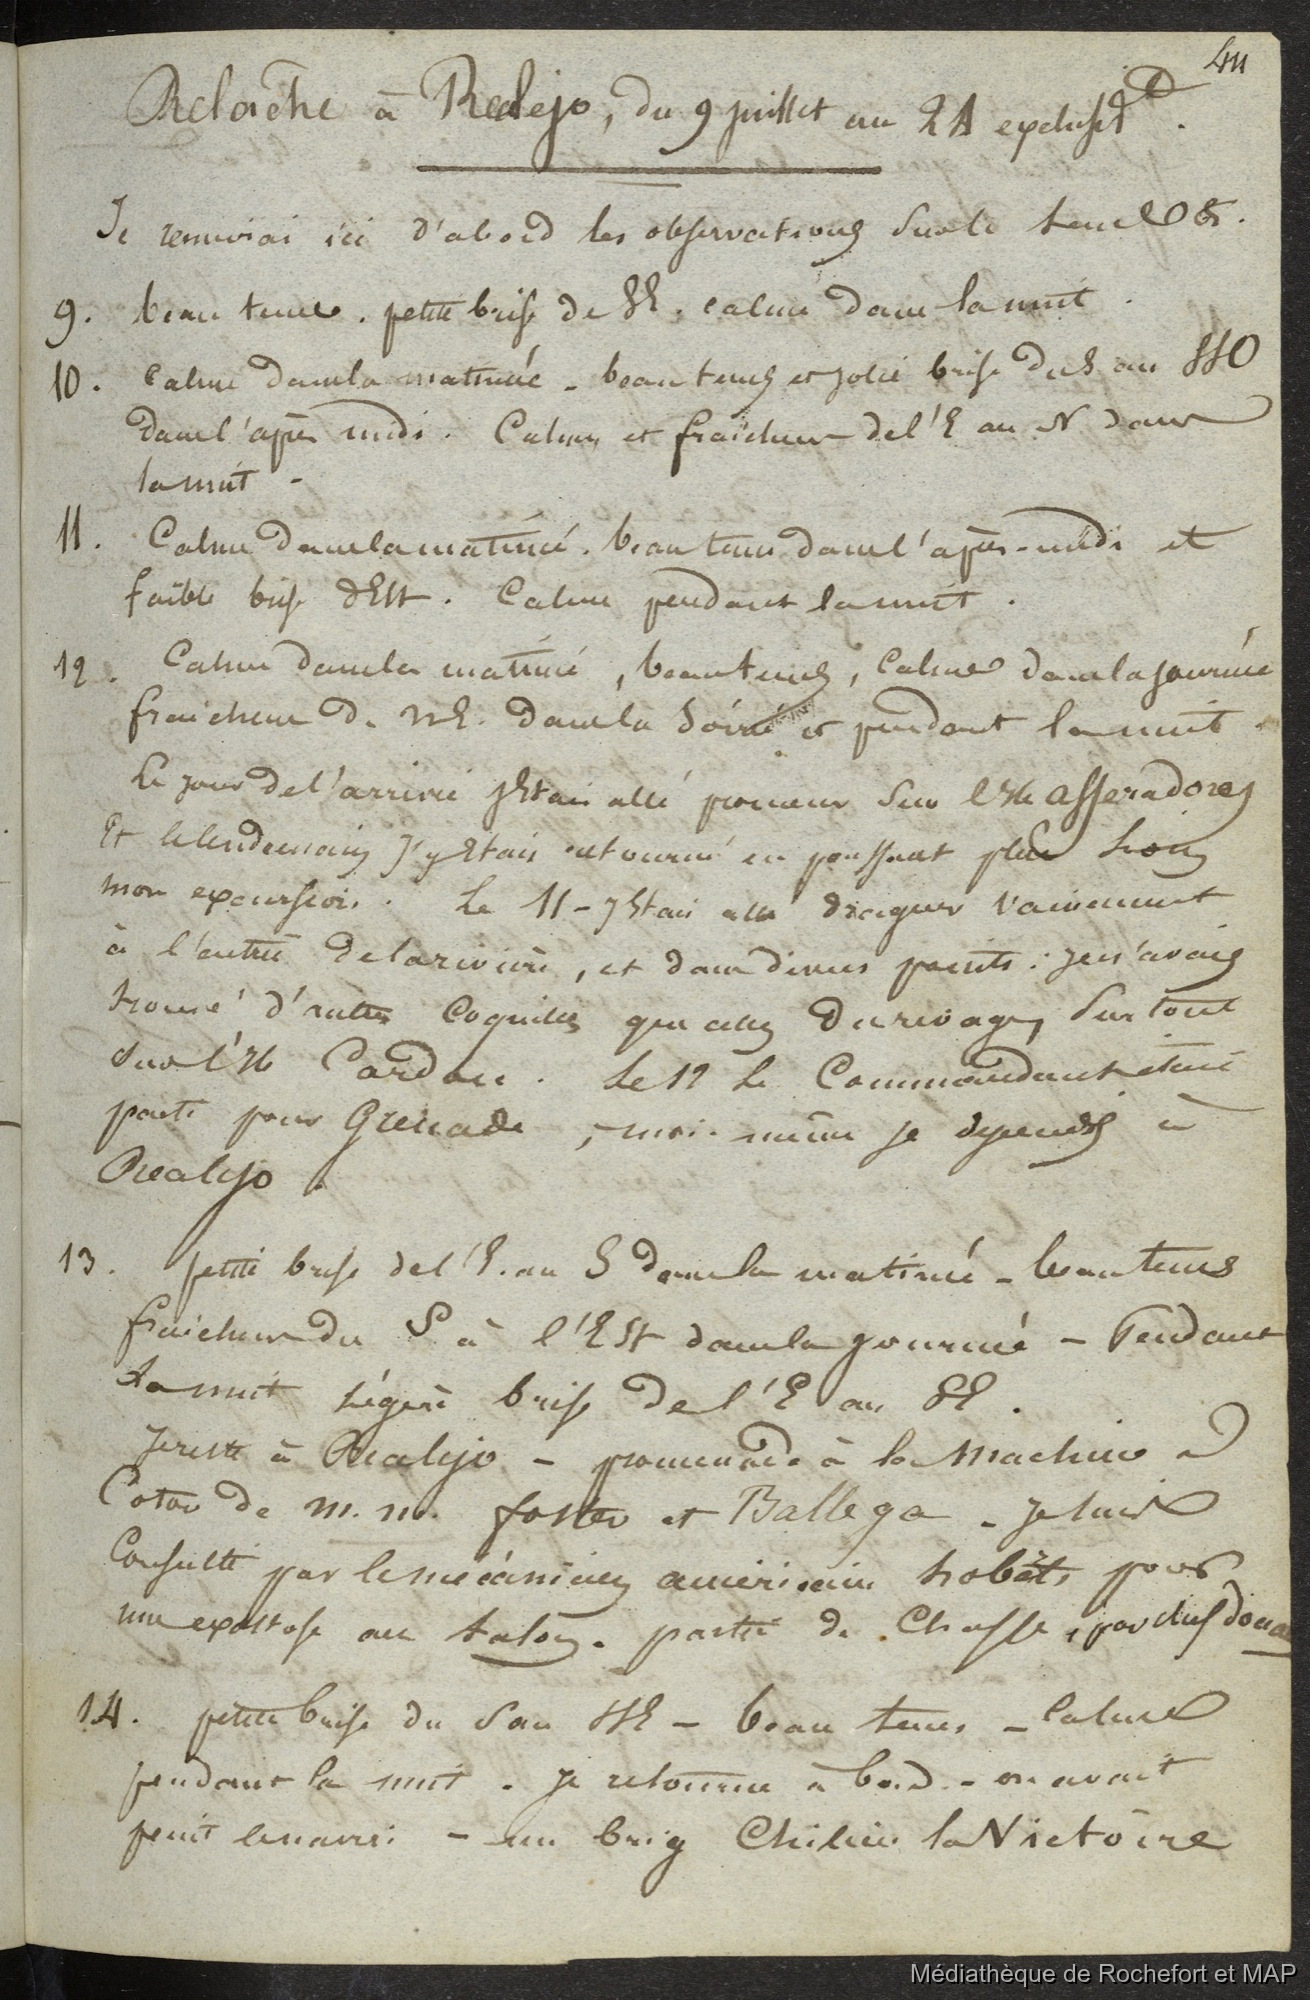 Relâche à Realejo, du 9 juillet au 21 exclusivt.
Je réunirai ici d'abord les observations sur le tems.
9. beau tems. petite brise de SE. calme dans la nuit.
10. Calme dans la matinée - beau tems et jolie brise du S au SSO
dans l'après midi. Calme et fraicheur de l'E au N dans
la nuit -
11. Calme dans la matinée. beau tems dans l'après-midi et
faible brise d'Est. Calme pendant la nuit.
12. Calme dans la matinée, beau tems, Calme dans la journée
fraicheur de NE. dans la soirée et pendant la nuit.
Le jour de l'arrivée j'étais allé promener sur l'île asseradores
Et le lendemain j'y étais retourné en poussant plus loin
mon excursion. Le 11 - j'étais allé draguer vainement
à l'entrée de la rivière, et dans divers points : je n'avais
trouvé d'autres Coquilles que celles du rivage, surtout
sur l'île Cardon. Le 12 le Commandant étant
parti pour Grenade, moi-même je descendis à
Realejo.
13. petite brise de l'E. au S dans la matinée - beau tems
fraicheur du S à l'Est dans la journée - Pendant
La nuit légère brise de l'E au SE.
Je reste à Realejo - promenade à la Machine à
Coton de m.m. foster et Ballega - je suis
Consulté par le mécanicien américain pour
une exostose au talon. partie de Chasse,
14. petite brise du S au SSE - beau tems - Calme
pendant la nuit. je retourne à bord - on avait
peint le navire - un brig Chilien la Victoire
Médiathèque de Rochefort et MAP